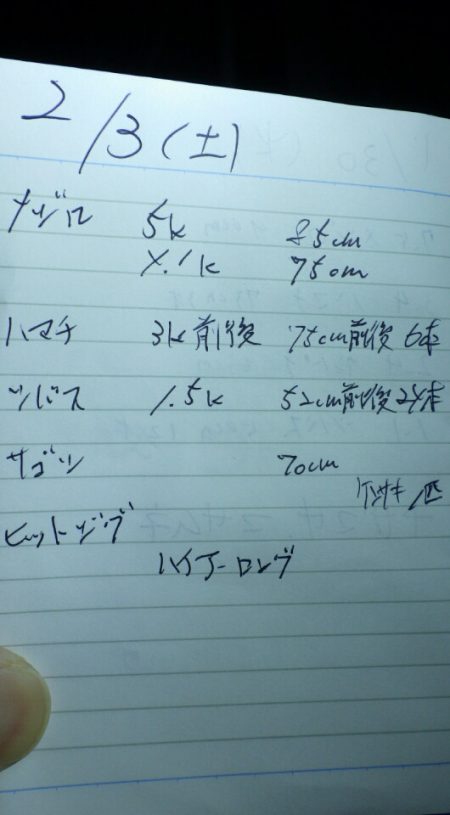 2/3(土)
メジロ 5k 85cm
4.1k 75cm
ハマチ 3k前後 75cm前後 6本
ツバス 1.5k 52cm前後 24本
サゴシ 70cm
ケンサキ 1匹
ヒットジグ
ハイアーロング